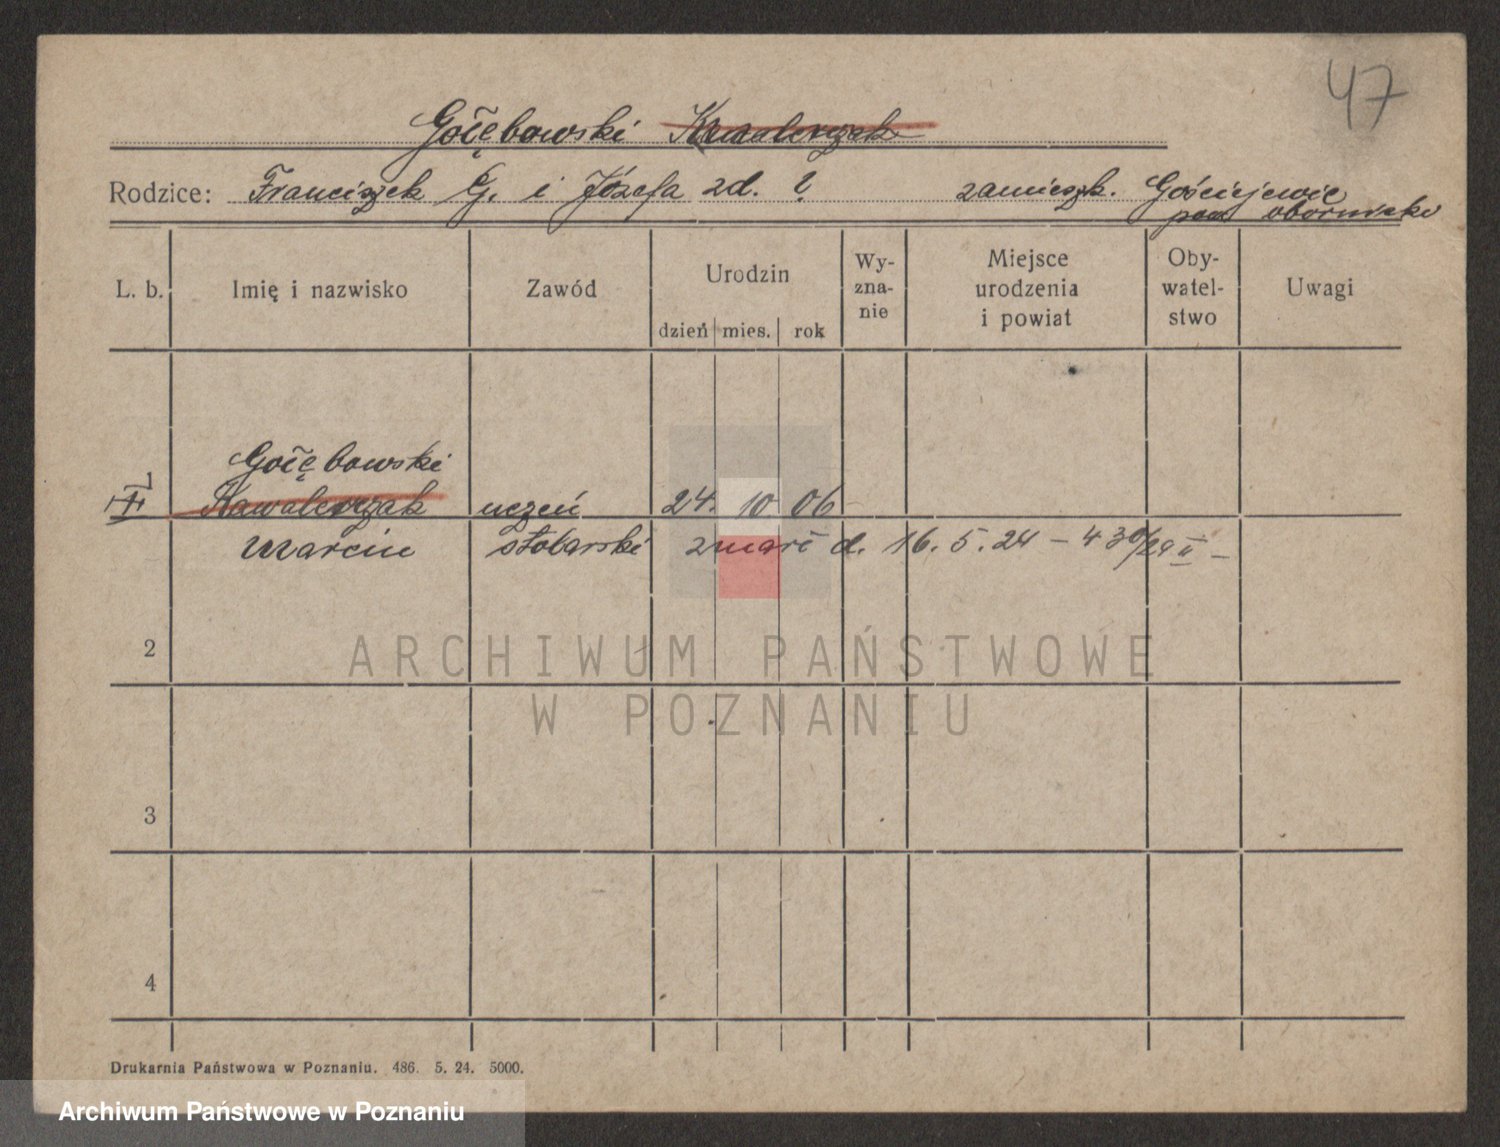 47
Gołębowski Kawalerczak
Rodzice: Franciszek G. i Józefa zd. ? zamieszk. Gościejewie
pow obornicki
L. b. Imię i nazwisko Zawód Urodzin Wy-zna-nie Miejsce urodzenia i powiat Oby-watel-stwo Uwagi
dzień mies. rok
Gołębowski
1 Kawalerczak uczeń 24. 10 06
Marcin stolarski zmarł d. 16. 5. 24 – 430/29 II –
2
3
4
ARCHIWUM PAŃSTWOWE
W POZNANIU
Drukarnia Państwowa w Poznaniu. 486. 5. 24. 5000.
Archiwum Państwowe w Poznaniu